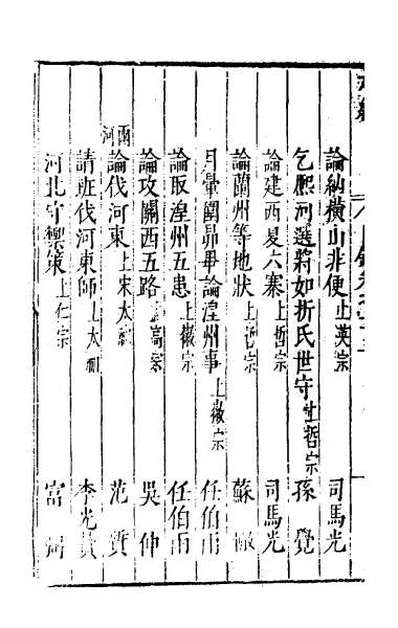 論納橫山非便上英宗 司馬光
乞熙河選將如折氏世守上哲宗 孫覺
論建西夏六寨上哲宗 司馬光
論蘭州等地狀上哲宗 蘇轍
月暈圍昴畢論湟州事上徽宗 任伯雨
論取湟州五患上徽宗 任伯雨
論攻關西五路上高宗 吳伸
河南
論伐河東上宋太祖 范質
請班伐河東師上太祖 李光贊
河北守禦策上仁宗 富弼